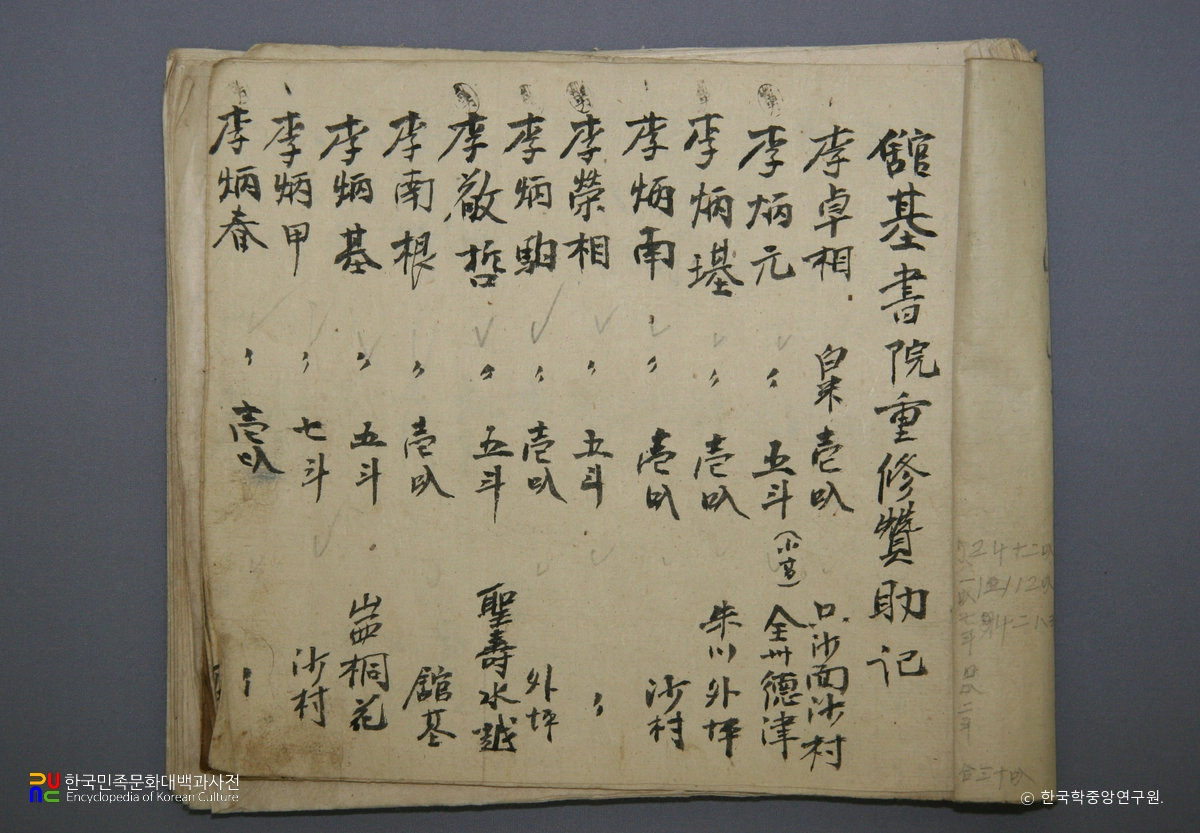 舘基書院重修贊助記
李卓相 白米 壱叺 只沙面沙村
李炳元 〃 五斗 (小高) 全州德津
李炳璂 〃 壱叺 朱川外坪
李炳南 〃 壱叺 沙村
李榮相 〃 五斗 〃
李炳駒 〃 壱叺 外坪
李敬哲 〃 五斗 聖壽水越
李南根 〃 壱叺 舘基
李炳基 〃 五斗 桐花
李炳甲 〃 七斗 沙村
李炳春 〃 壱叺 〃
合三十叺
한국민족문화대백과사전
Encyclopedia of Korean Culture
© 한국학중앙연구원.